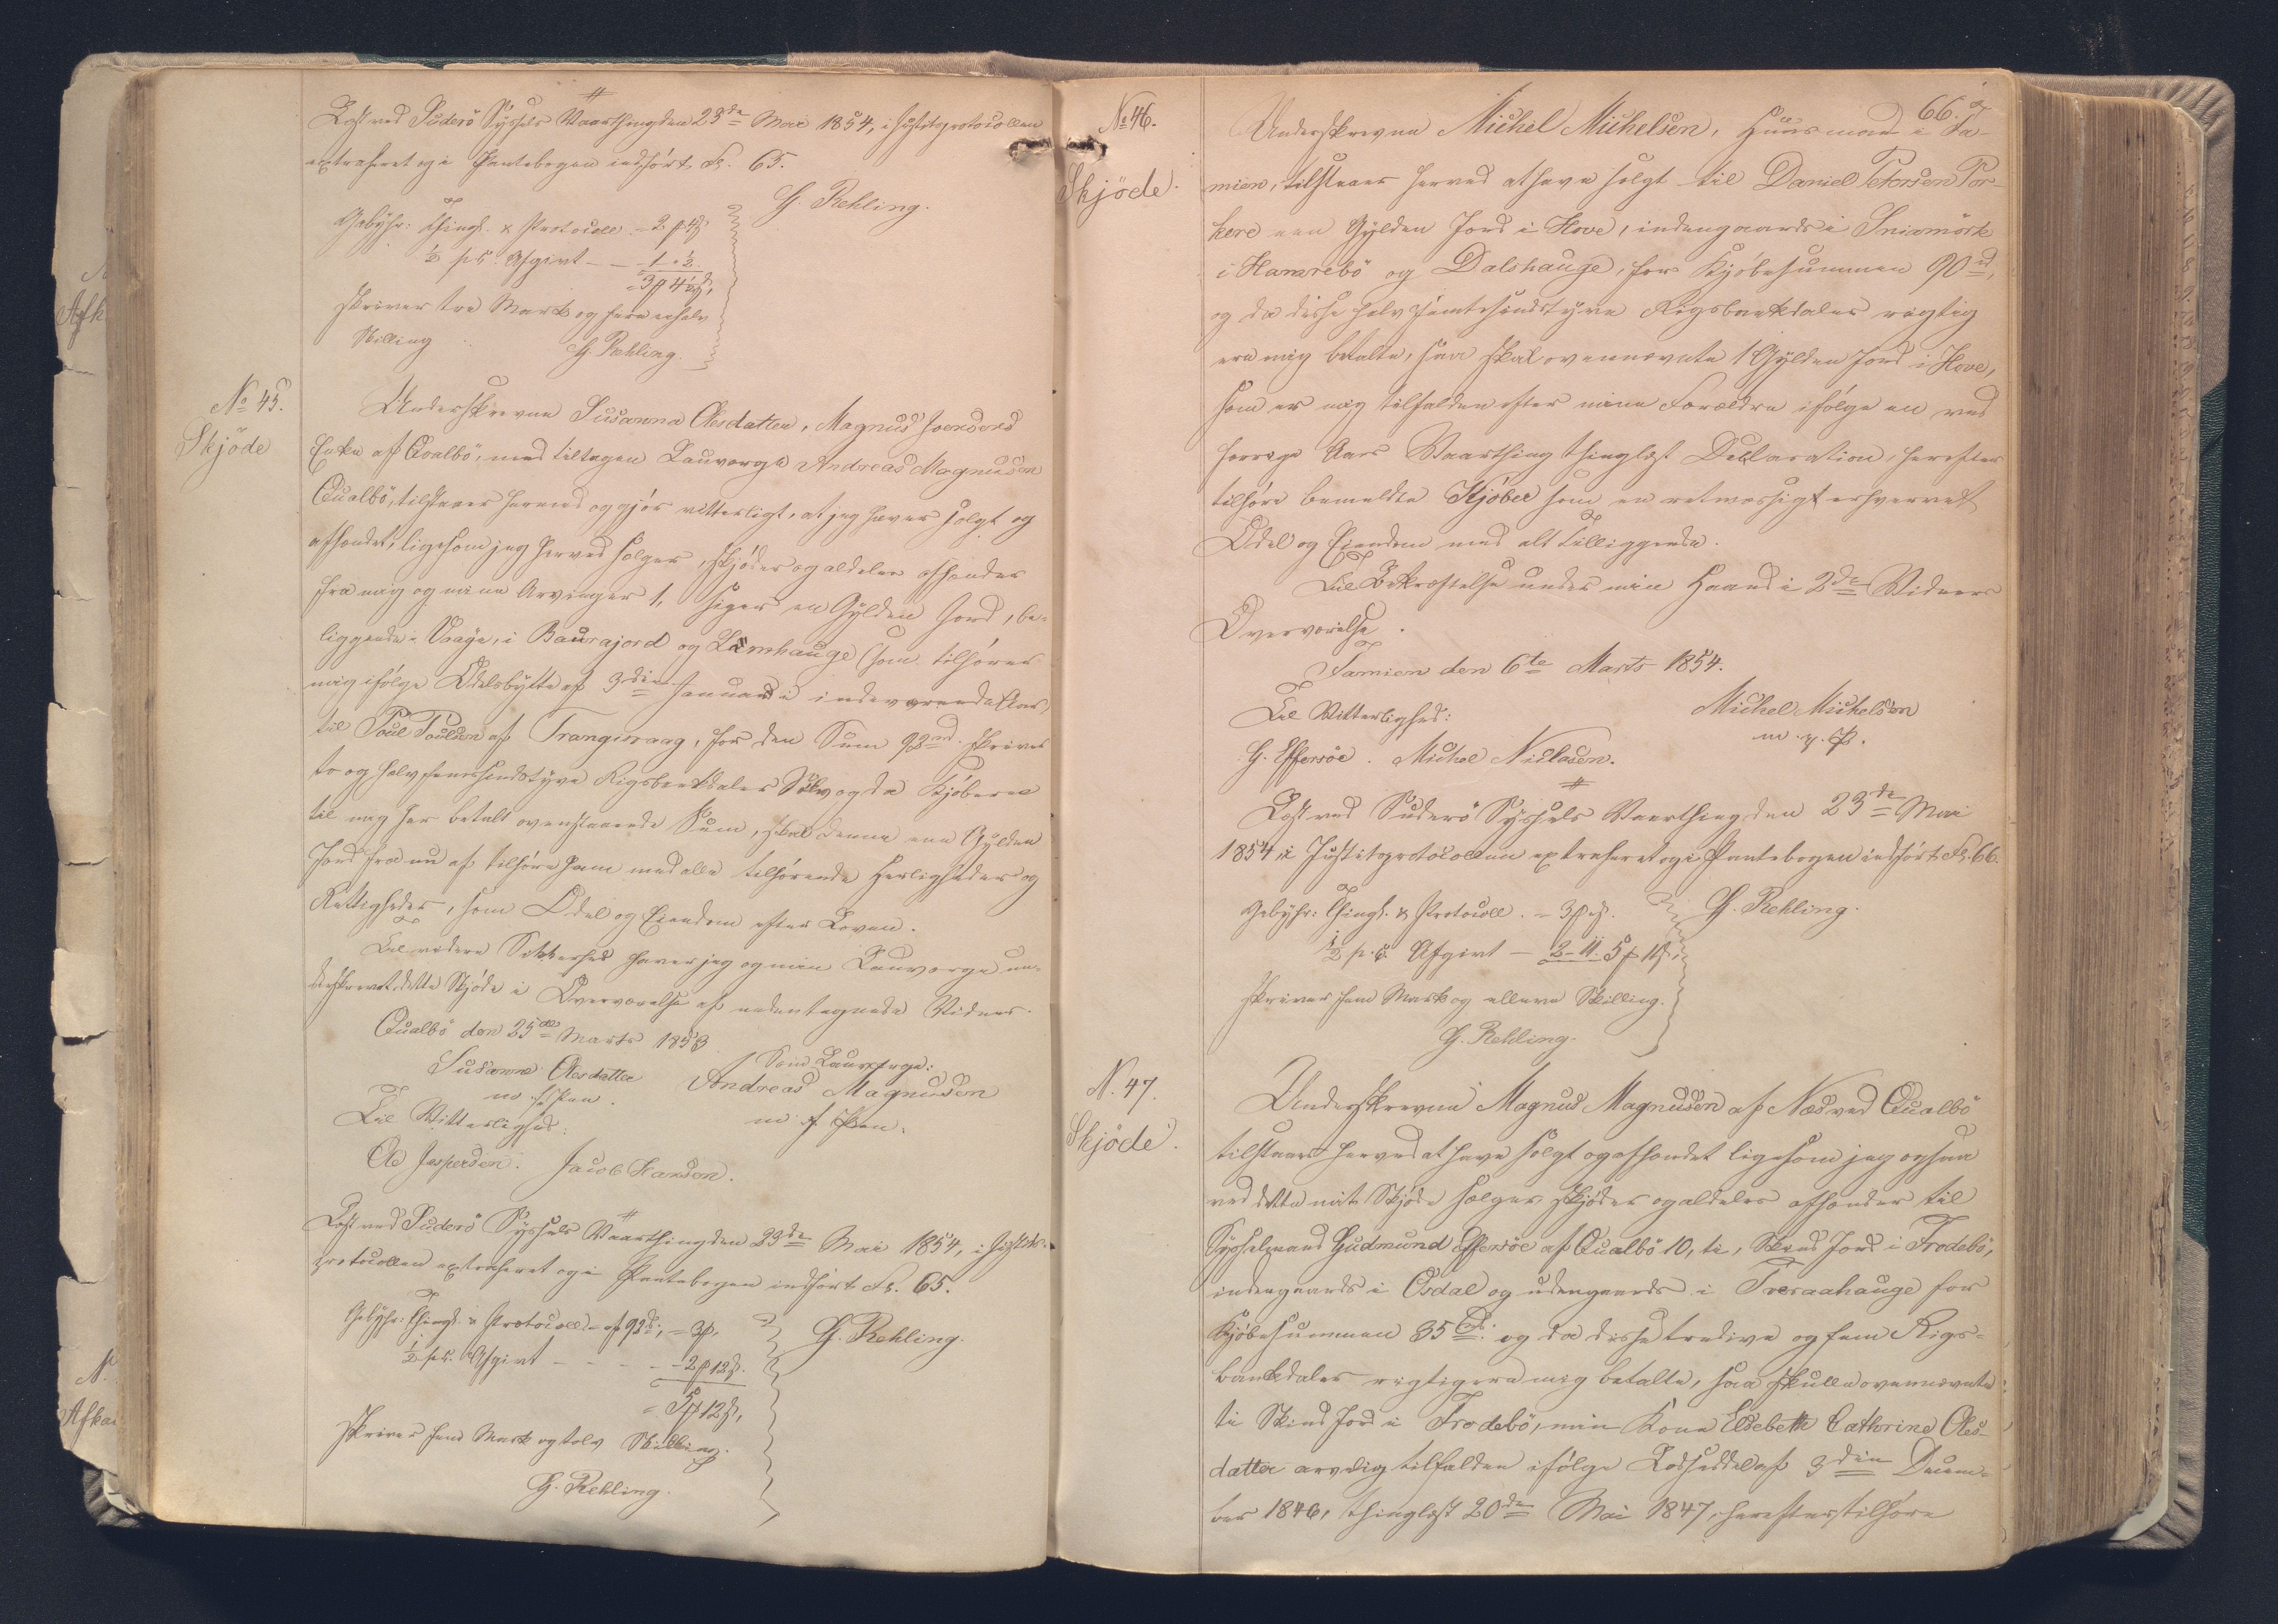 Læst ved Suderö Syssels Vaarthing den 23de Mai 1854, i Justitsprotocollen
extraheret og i Pantebogen indført Fol. 65.
G. Rehling.
Gebyhr: Thingl. & Protocoll - 2 4
½ p.C. Afgivt - 1 - ½
3 4½
skriver tre Mark og fire en halv
Skilling
G. Rehling.
No 45.
Skjöde
Underskrevne Susanna Olesdatter, Magnus Joensens
Enke af Qvalbö, med tiltagen Lauværge Andreas Magnussen
Qualbö, tilstaaer herved og gjør vitterligt, at jeg haver solgt og
afhændet, ligesom jeg herved sælger, skjöder og aldeles afhænder
fra mig og mine Arvinger 1, siger en Gylden Jord, be-
liggende i Vaage, i Baurajord og Lamhauge (som tilhører
mig ifølge Odelsbytte af 3die Januari indeværende Aar)
til Poul Poulsen af Trangisvaag, for den Sum 92 rd. skriver
to og halvfemsindstyve Rigsbankdaler Sölv og da Kjøberen
til mig har betalt ovenstaaende Sum, skal denne ene Gylden
Jord fra nu af tilhøre ham med alle tilhørende Herligheder og
Rettigheder, som Odel og Eiendom efter Loven.
Til videre Sikkerhed haver jeg og min Lauværge un-
derskrevet dette Skjöde i Overværelse af undertegnede Vidner.
Qualbö den 25de Marts 1853
Susanne Olesdatter
m. f. Pen.
Som Lauværge:
Andreas Magnussen
m. f. Pen.
Til Vitterlighed:
Ole Jespersen. Jacob Hansen.
Læst ved Suderö Syssels Vaarthing den 23de Mai 1854, i Justits-
protocollen extraheret og i Pantebogen indført Fol. 65.
Gebyhr: Thingl. & Protocoll af 92 rd., - 3
½ p.C. Afgivt - - - - 2 12
= 5 12
skriver fem Mark og tolv Skilling.
G. Rehling.
G. Rehling.
66.
No 46.
Skjöde.
Underskrevne Michel Michelsen, Huusmand i Fa-
mien, tilstaaer herved at have solgt til Daniel Petersen Por-
kere een Gylden Jord i Hove, indengaards i Sniomörk
i Hamrebö og Dalshauge, for Kjöbesummen 90 rd,
og da disse halvfemtesindstyve Rigsbankdaler rigtig
ere mig betalte, saa skal ovennævnte 1 Gylden Jord i Hove,
som er mig tilfalden efter mine Forældre ifølge en ved
forrige Aars Vaarthing thinglæst Declaration, herefter
tilhøre bemeldte Kjøber som en retmæssigt erhvervet
Odel og Eiendom med alt Tilliggende.
Til Bekræftelse under min Haand i 2de Vidners
Overværelse.
Famien den 6te Marts 1854.
Michel Michelsen
m. p.
Til Vitterlighed:
G. Effersøe. Michel Niclasen.
Læst ved Suderö Syssels Vaarthing den 23de Mai
1854 i Justitsprotocollen extraheret og i Pantebogen indført Fol. 66.
Gebyhr: Thingl. & Protocoll. - 3
½ p.C. Afgivt - 2 - 11. 5 11
skriver fem Mark og elleve Skilling.
G. Rehling.
G. Rehling.
N. 47.
Skjöde.
Underskrevne Magnus Magnussen af Næs ved Qualbö
tilstaaer herved at have solgt og afhændet ligesom jeg ogsaa
ved dette mit Skjöde sælger, skjöder og aldeles afhænder til
Sysselmand Gudmund Effersöe af Qualbö 10, ti, Skind Jord i Frodebö,
indengaards i Osdal og udengaards i Tveraahauge for
Kjöbesummen 35 rd: og da disse tredive og fem Rigs-
bankdaler rigtig ere mig betalte, saa skulle ovennævnte
ti Skind Jord i Frodebö, min Kone Elsebeth Cathrine Oles-
datter arvelig tilfalden ifølge Lodseddel af 3die Decem-
ber 1846, thinglæst 20de Mai 1847, herefter tilhøre